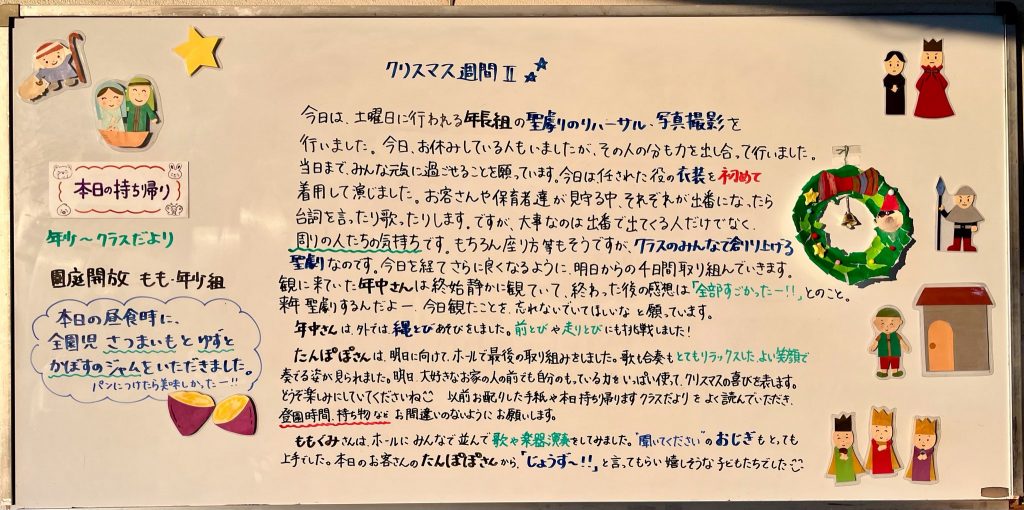 クリスマス週間Ⅱ
今日は、土曜日に行われる年長組の聖劇のリハーサル、写真撮影を
行いました。今日、お休みしている人もいましたが、その人の分も力を出し合って行いました。
当日まで、みんな元気に過ごせることを願っています。今日は任された役の衣装を初めて
着用して演じました。お客さんや保育者達が見守る中、それぞれが出番になったら
台詞を言ったり歌ったりします。ですが、大事なのは出番で出てくる人だけでなく、
周りの人たちの気持ちです。もちろん座り方等もそうですが、クラスのみんなで創り上げる
聖劇なのです。今日を経てさらに良くなるように、明日からの4日間取り組んでいきます。
観に来ていた年中さんは終始静かに観ていて、終わった後の感想は「全部すごかったー!!」とのこと。
来年聖劇するんだよー、今日観たことを、忘れないでいてほしいなと願っています。
年中さんは、外では、縄とびあそびをしました。前とびや走りとびにも挑戦しました!
たんぽぽさんは、明日に向けて、ホールで最後の取り組みをしました。歌も合奏もとてもリラックスした、よい笑顔で
奏でる姿が見られました。明日、大好きなお家の人の前でも自分のもっている力をいっぱい使って、クリスマスの喜びを表します。
どうぞ楽しみにしていてくださいね 以前お配りした手紙や本日持ち帰りますクラスだよりをよく読んでいただき、
登園時間、持ち物などお間違いのないようにお願いします。
ももぐみさんは、ホールにみんなで並んで歌や楽器演奏をしてみました。"聞いてください"のおじぎもとっても
上手でした。本日のお客さんのたんぽぽさんから、「じょうず〜!!」と言ってもらい嬉しそうな子どもたちでした
本日の持ち帰り
年少〜クラスだより
園庭開放 もも・年少組
本日の昼食時に、
全園児 さつまいもと ゆずと
かぼすのジャムをいただきました。
パンにつけたら美味しかったー!!